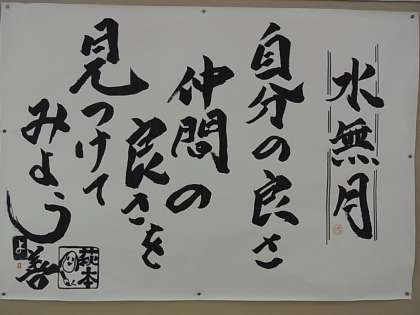 水無月
自分の良さ
仲間の
良さを
見つけて
みよう
よ
善
萩本